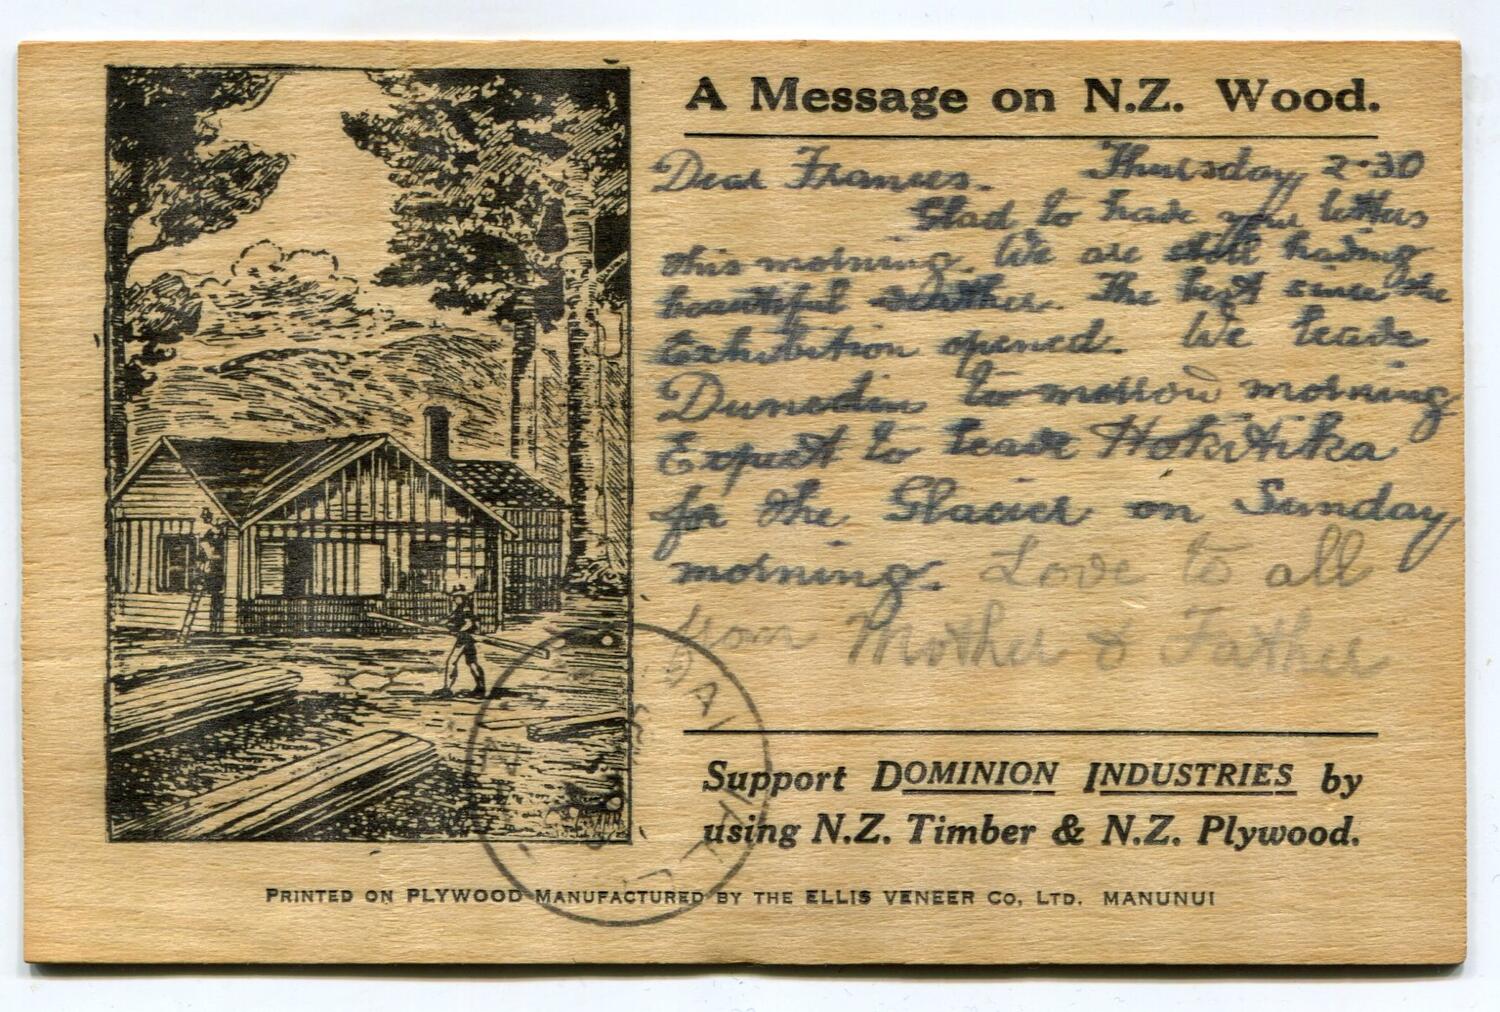 A Message on N.Z. Wood.
Dear Frances. Thursday 2-30
Glad to have your letters
this morning. We are still having
beautiful weather. The best since the
Exhibition opened. We leave
Dunedin to-morrow morning
Expect to leave Hokitika
for the Glacier on Sunday
morning. Love to all
from Mother & Father
Support DOMINION INDUSTRIES by
using N.Z. Timber & N.Z. Plywood.
PRINTED ON PLYWOOD MANUFACTURED BY THE ELLIS VENEER Co, LTD. MANUNUI